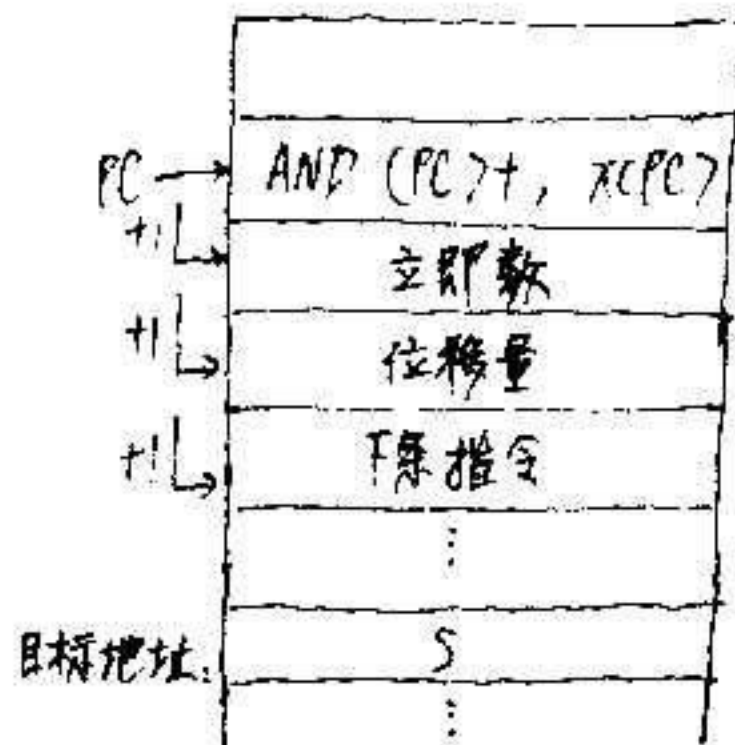 PC AND (PC)+, X(PC)
+1
立即数
+1
位移量
+1
下条指令
⋮
目标地址: S
⋮